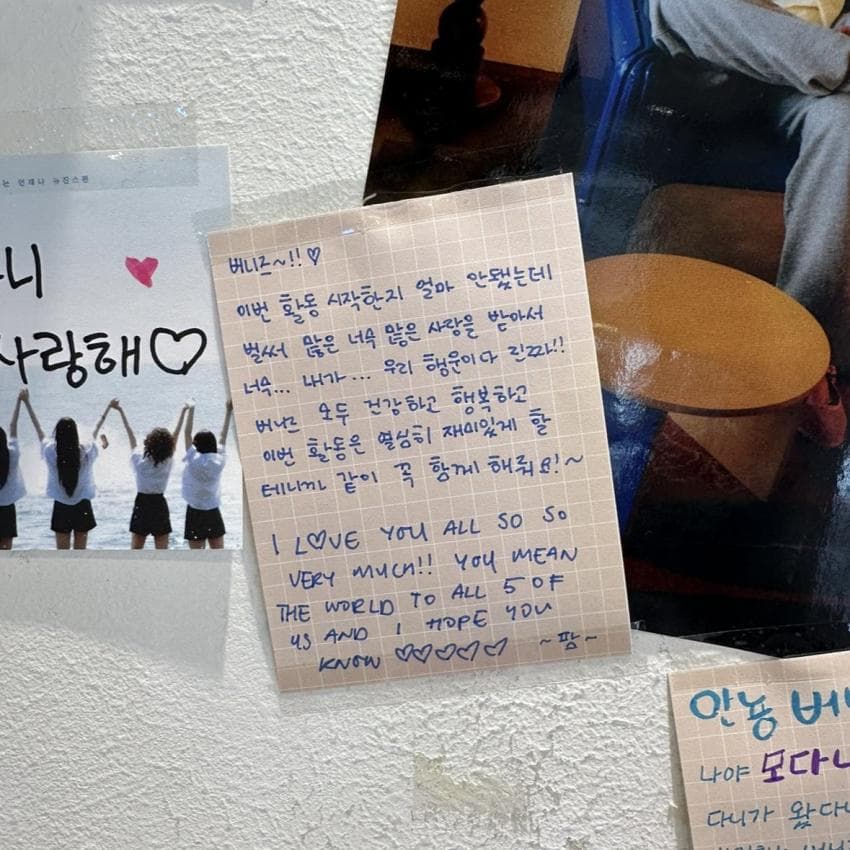 는 언제나 뉴진스편
니
사랑해♡
버니즈~!!♡
이번 활동 시작한지 얼마 안됐는데
벌써 많은 너무 많은 사랑을 받아서
너무... 내가... 우리 행운이다 진짜!!
버니즈 모두 건강하고 행복하고
이번 활동은 열심히 재미있게 할
테니까 같이 꼭 함께 해줘요!~
I L♡VE YOU ALL SO SO
VERY MUCH!! YOU MEAN
THE WORLD TO ALL 5 OF
US AND I HOPE YOU
KNOW ♡♡♡♡♡ ~팜~
안뇽 버
나야 모다
다니가 왔다